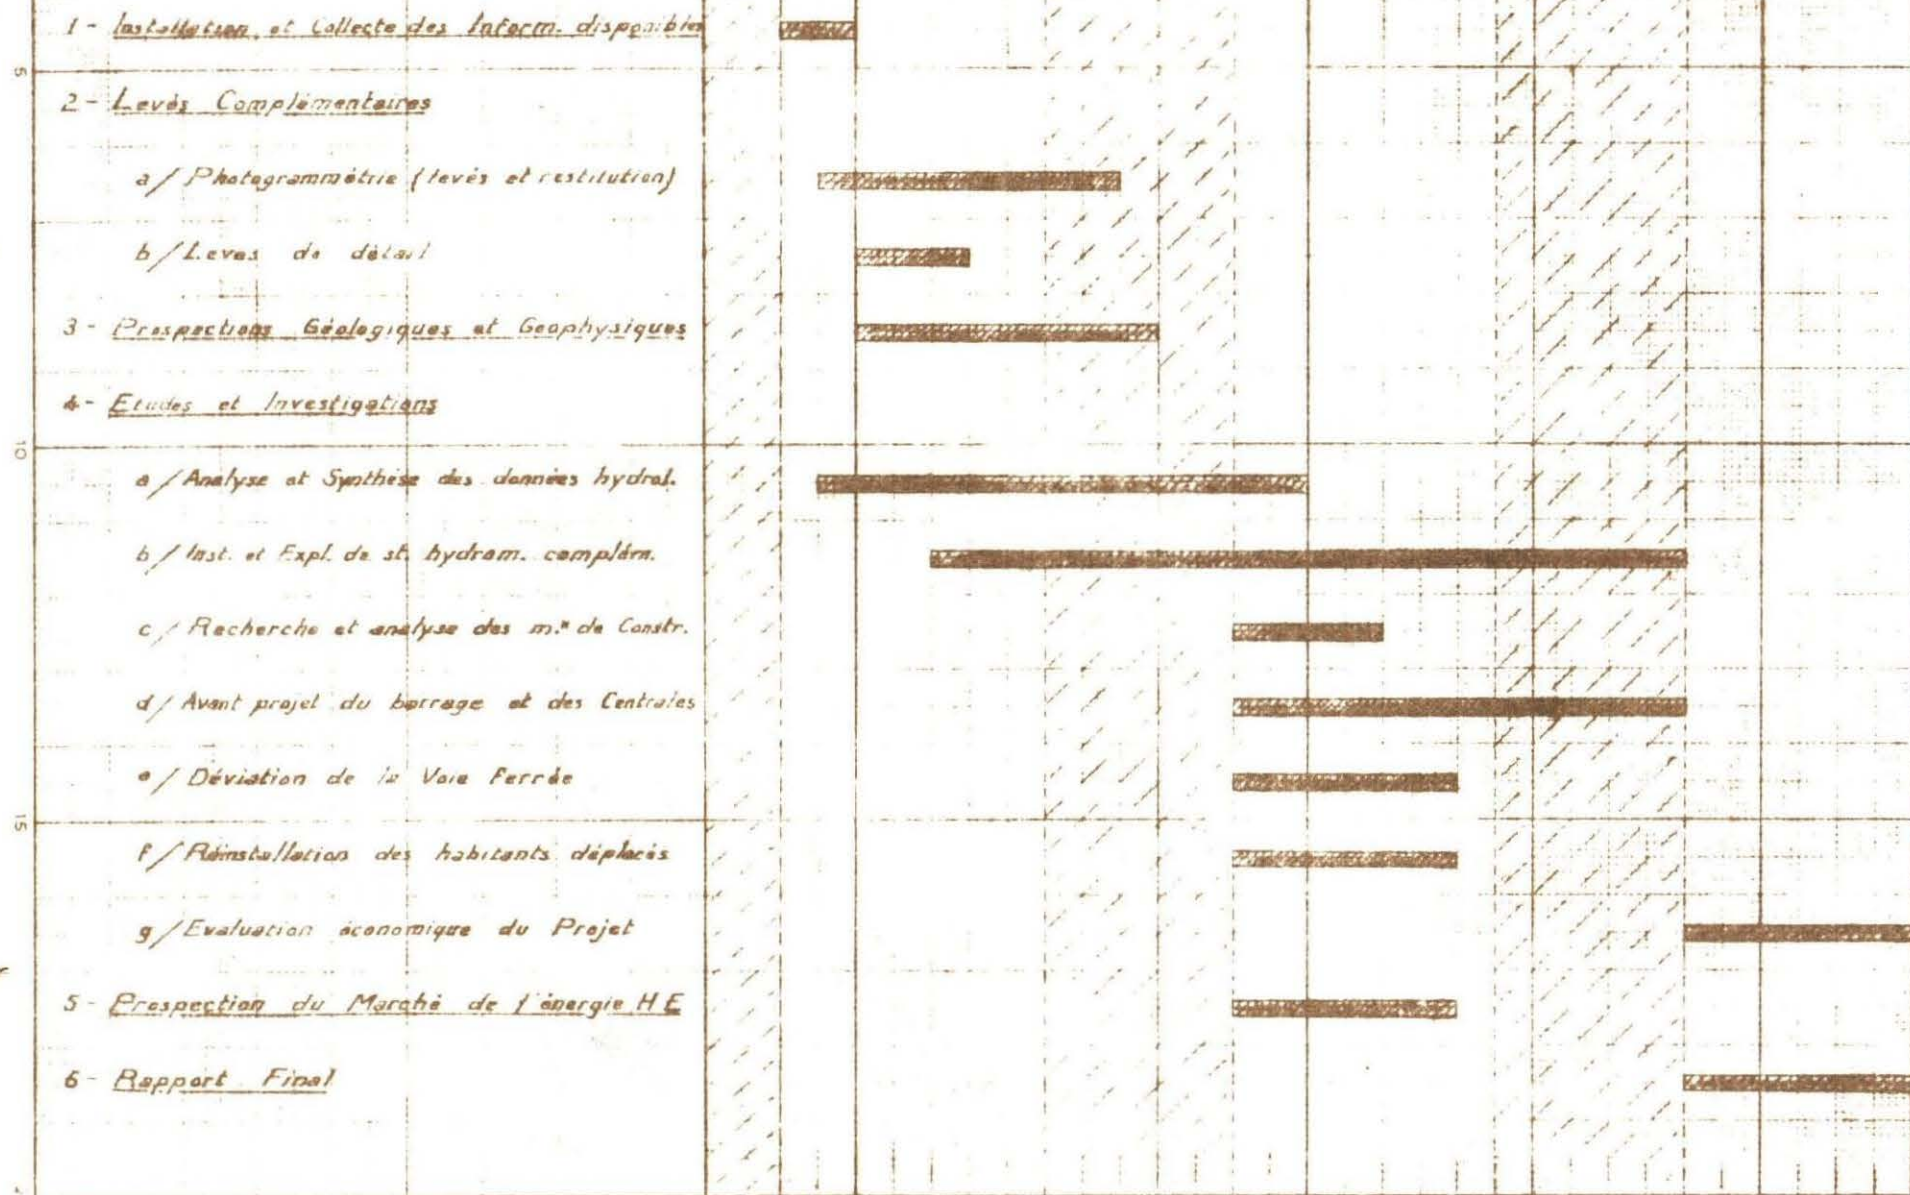 1 - Installation et Collecte des Inform. disponibles
5
2 - Levés Complémentaires
a/ Photogrammétrie (levés et restitution)
b/ Leves de détail
3 - Prospections Géologiques et Geophysiques
4 - Etudes et Investigations
10
a/ Analyse et Synthèse des données hydrol.
b/ Inst. et Expl. de st. hydrom. complém.
c/ Recherche et analyse des m.x de Constr.
d/ Avant projet du barrage et des Centrales
e/ Déviation de la Voie Ferrée
15
f/ Réinstallation des habitants déplacés
g/ Evaluation économique du Projet
5 - Prospection du Marché de l'énergie H E
6 - Rapport Final